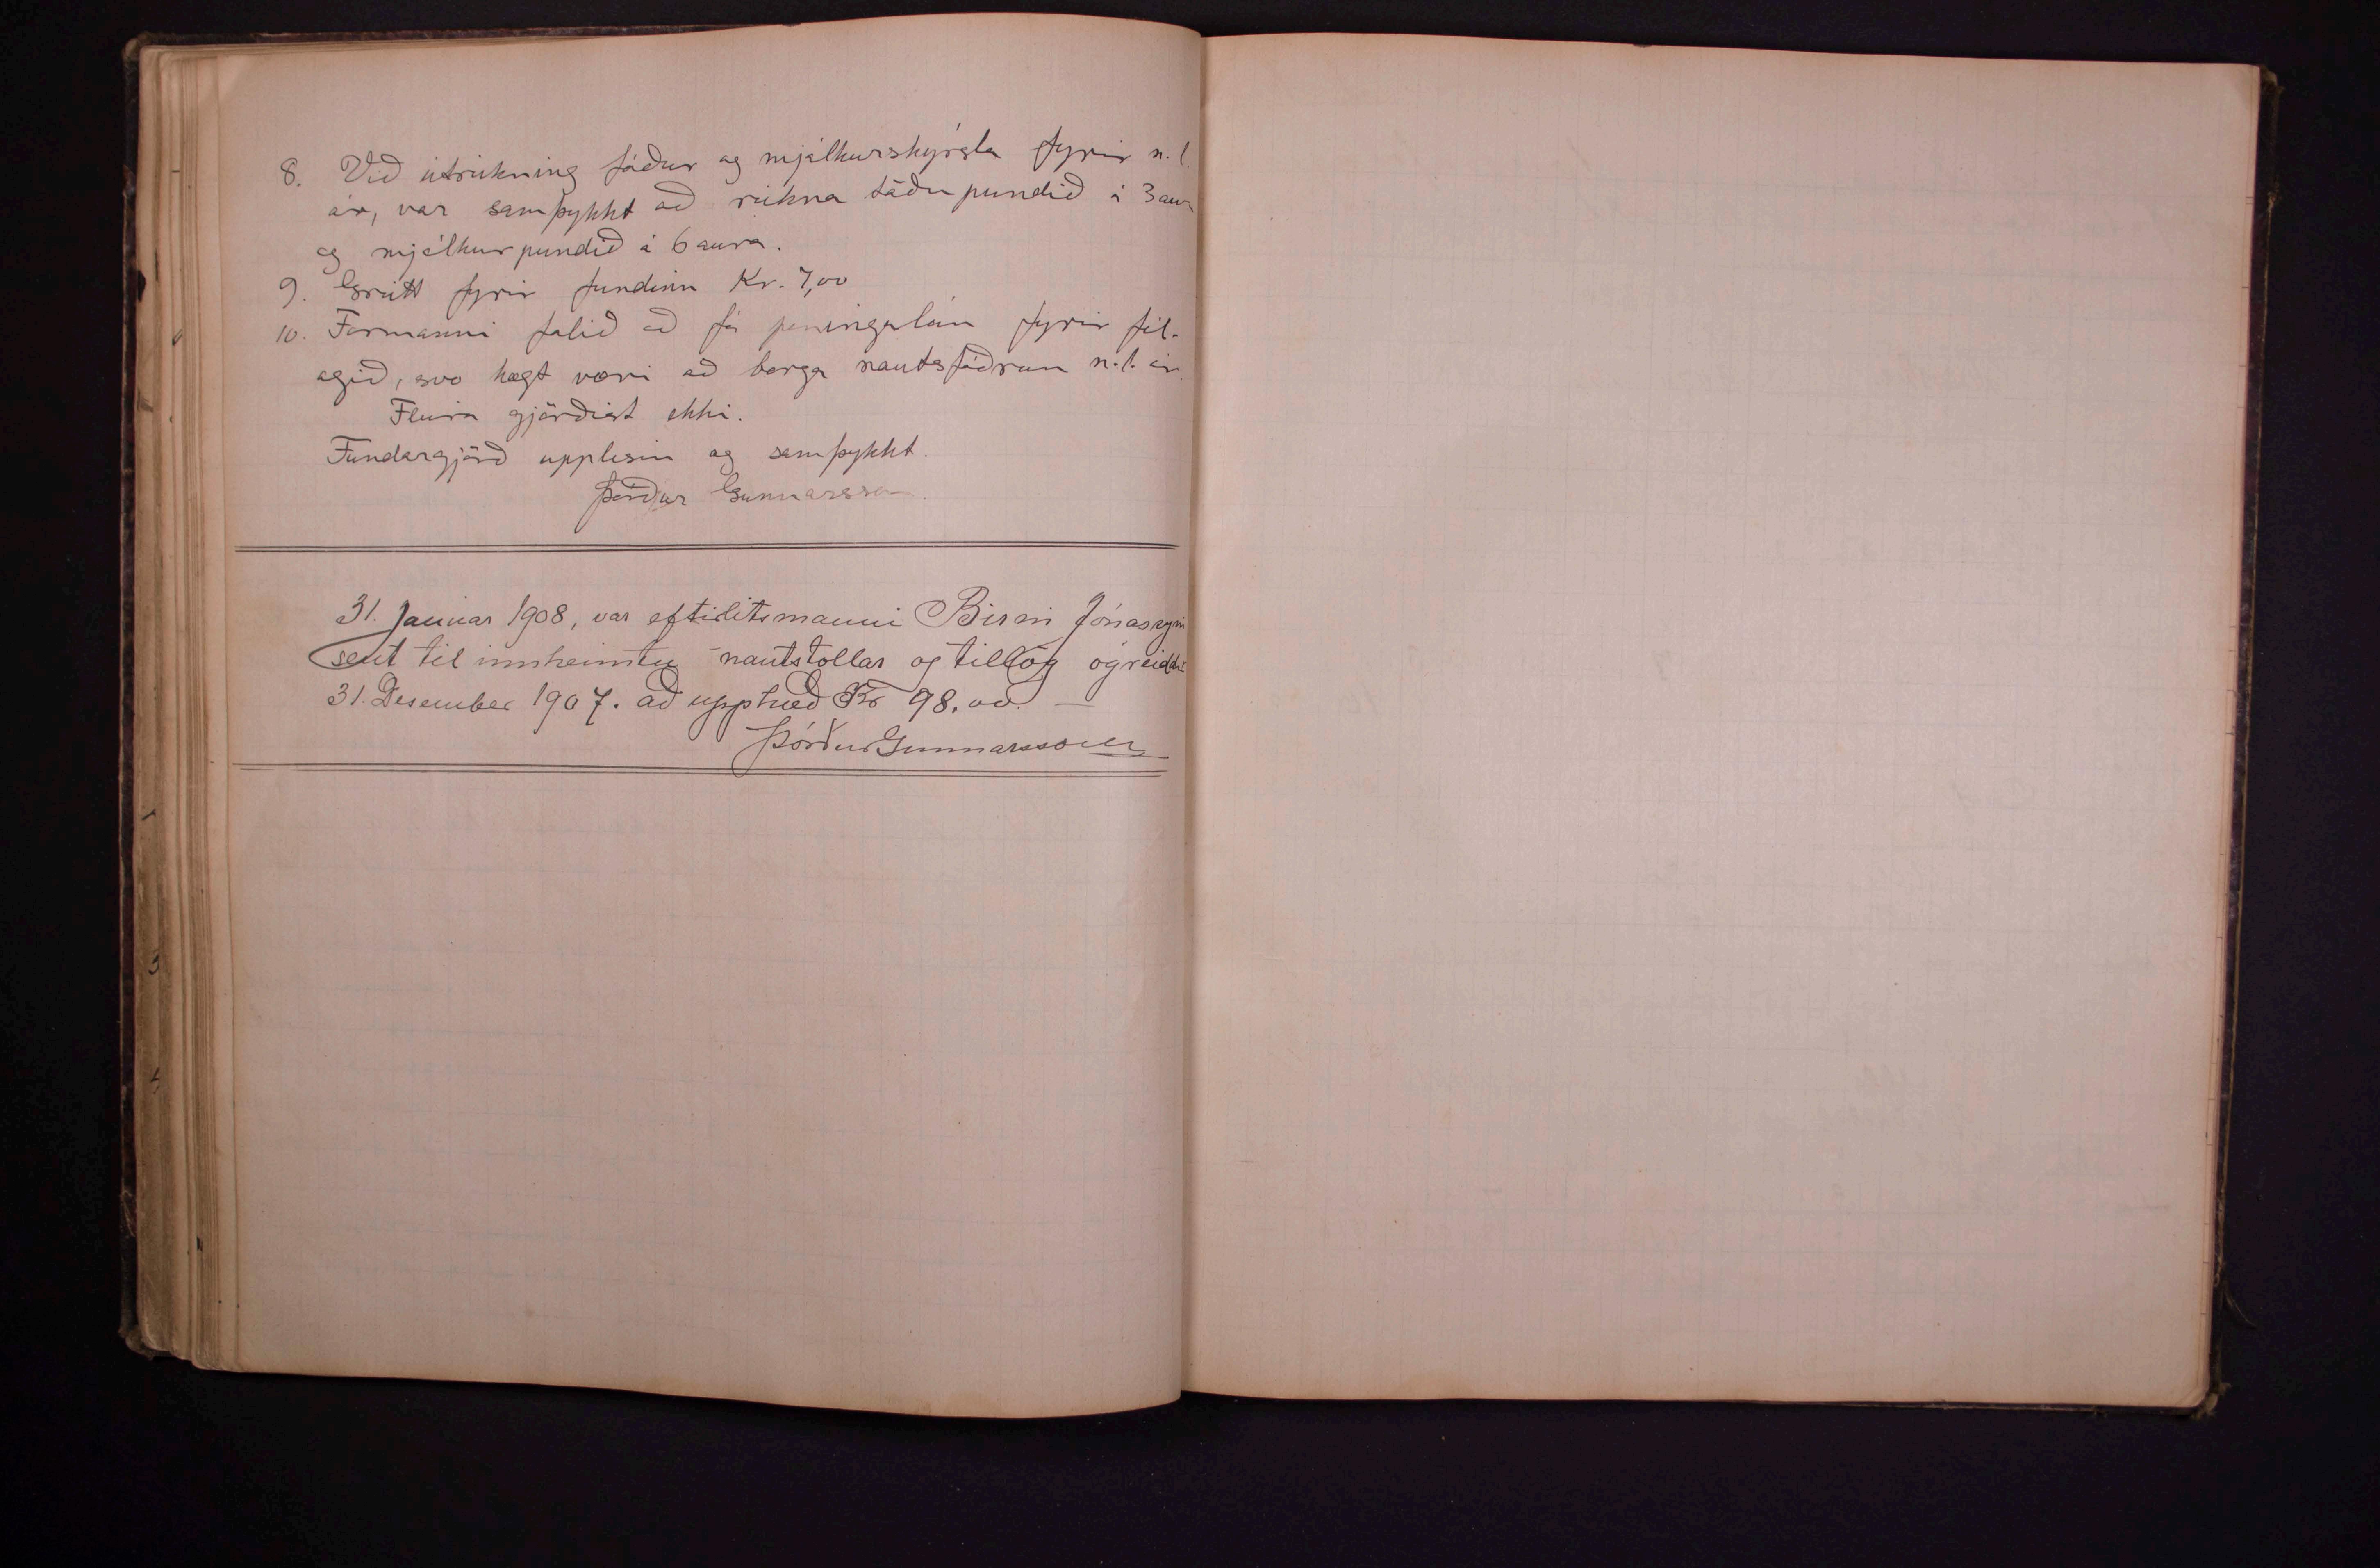 8. Við útrikning fóður og mjólkurskýrsla fyrir n.l.
ár, var samþykkt að rikna töðupundið á 3 aura
og mjólkurpundið á 6 aura.
9. Greitt fyrir fundinn Kr. 7,00
10. Formanni falið að fá peningalán fyrir fél-
agið, svo hægt væri að borga nautsfóðrun n.l. ár.
Fleira gjörðist ekki.
Fundargjörð upplesin og samþykkt.
Þórður Gunnarsson.
31. Januar 1908, var eftirlitsmanni Birni Jónassyni
sent til innheimtu nautstollar og tillög ógreidd
31. Desember 1907. að upphæð Kr 98.00. —
Þórður Gunnarsson